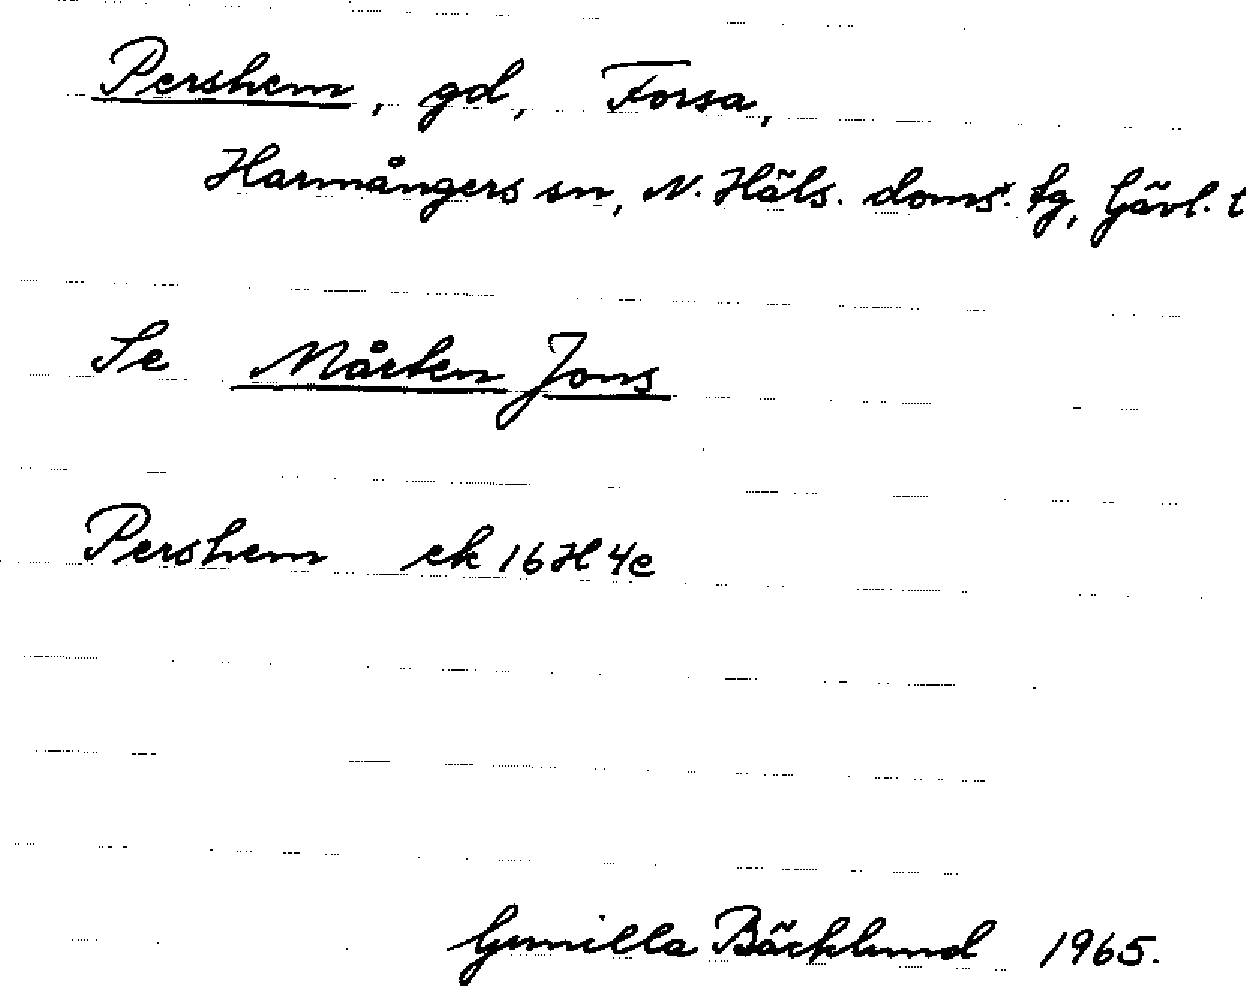 Pershem, gd, Forsa,
Harmångers sn, N. Häls. doms. tg, Gävl. l
Se Mårten Jons
Pershem ek 16 H 4e
Gunilla Bäcklund 1965.